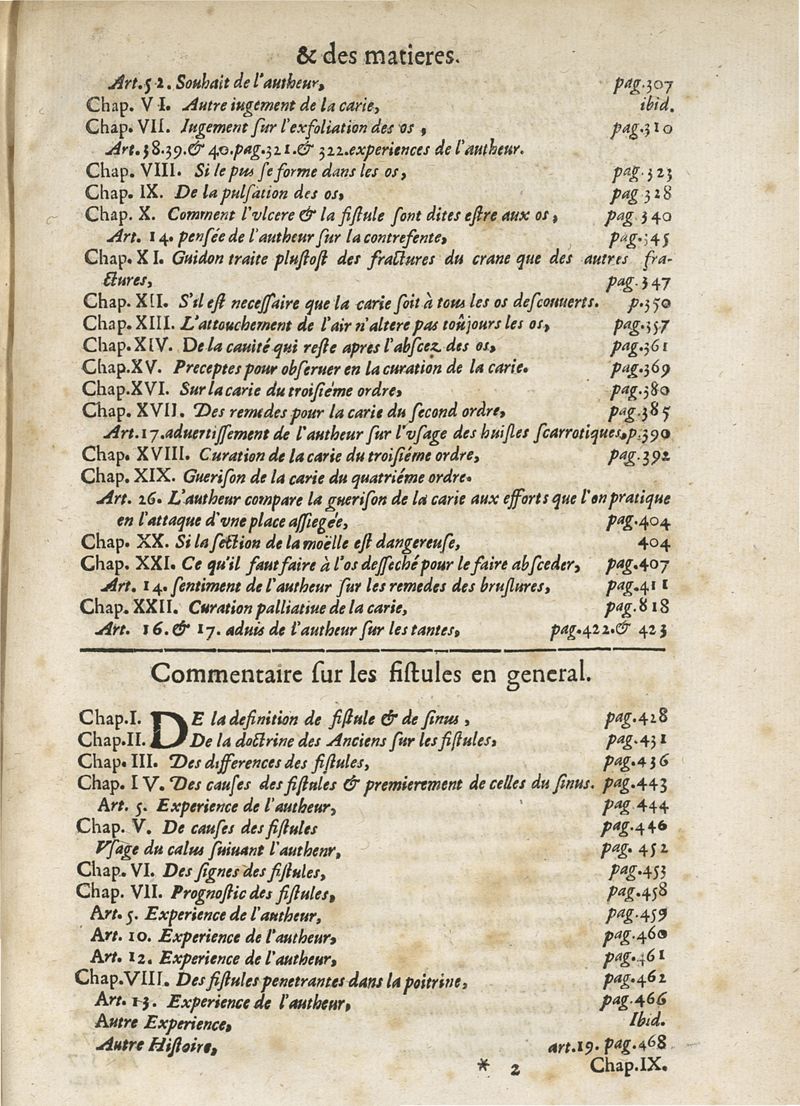 & des matieres.
Art.52. Souhait de l'autheur, pag.307
Chap. VI. Autre iugement de la carie, ibid.
Chap. VII. Iugement sur l'exfoliation des os, pag.310
Art.38.39.& 40.pag.321.& 322.experiences de l'autheur.
Chap. VIII. Si le pus se forme dans les os, pag.323
Chap. IX. De la pulsation des os, pag 328
Chap. X. Comment l'vlcere & la fistule sont dites estre aux os, pag.340
Art. 14. pensée de l'autheur sur la contrefente, pag.345
Chap. XI. Guidon traite plustost des fractures du crane que des autres fra-
ctures, pag.347
Chap. XII. S'il est necessaire que la carie soit à tous les os descouuerts. p.350
Chap. XIII. L'attouchement de l'air n'altere pas toûjours les os, pag.357
Chap. XIV. De la cauité qui reste apres l'abscez des os, pag.361
Chap.XV. Preceptes pour obseruer en la curation de la carie. pag.369
Chap.XVI. Sur la carie du troisiéme ordre, pag.380
Chap. XVII. Des remedes pour la carie du second ordre, pag.385
Art.17.aduertissement de l'autheur sur l'vsage des huisles scarrotiques,p.390
Chap. XVIII. Curation de la carie du troisiéme ordre, pag.392
Chap. XIX. Guerison de la carie du quatriéme ordre.
Art. 26. L'autheur compare la guerison de la carie aux efforts que l'on pratique
en l'attaque d'vne place assiegée, pag.404
Chap. XX. Si la section de la moëlle est dangereuse, 404
Chap. XXI. Ce qu'il faut faire à l'os desseché pour le faire absceder, pag.407
Art. 14. sentiment de l'autheur sur les remedes des bruslures, pag.411
Chap. XXII. Curation palliatiue de la carie, pag.818
Art. 16.& 17. aduis de l'autheur sur les tantes, pag.422.& 423
Commentaire sur les fistules en general.
Chap.I. DE la definition de fistule & de sinus, pag.428
Chap.II. De la doctrine des Anciens sur les fistules, pag.431
Chap. III. Des differences des fistules, pag.436
Chap. IV. Des causes des fistules & premierement de celles du sinus. pag.443
Art. 5. Experience de l'autheur, pag 444
Chap. V. De causes des fistules pag.446
Vsage du calus suiuant l'authenr, pag. 452
Chap. VI. Des signes des fistules, pag.453
Chap. VII. Prognostic des fistules, pag.458
Art. 5. Experience de l'autheur, pag.459
Art. 10. Experience de l'autheur, pag.460
Art. 12. Experience de l'autheur, pag.461
Chap.VIII. Des fistules penetrantes dans la poitrine, pag.462
Art. 13. Experience de l'autheur, pag.466
Autre Experience, Ibid.
Autre Histoire, art.19. pag.468
* 2 Chap.IX.